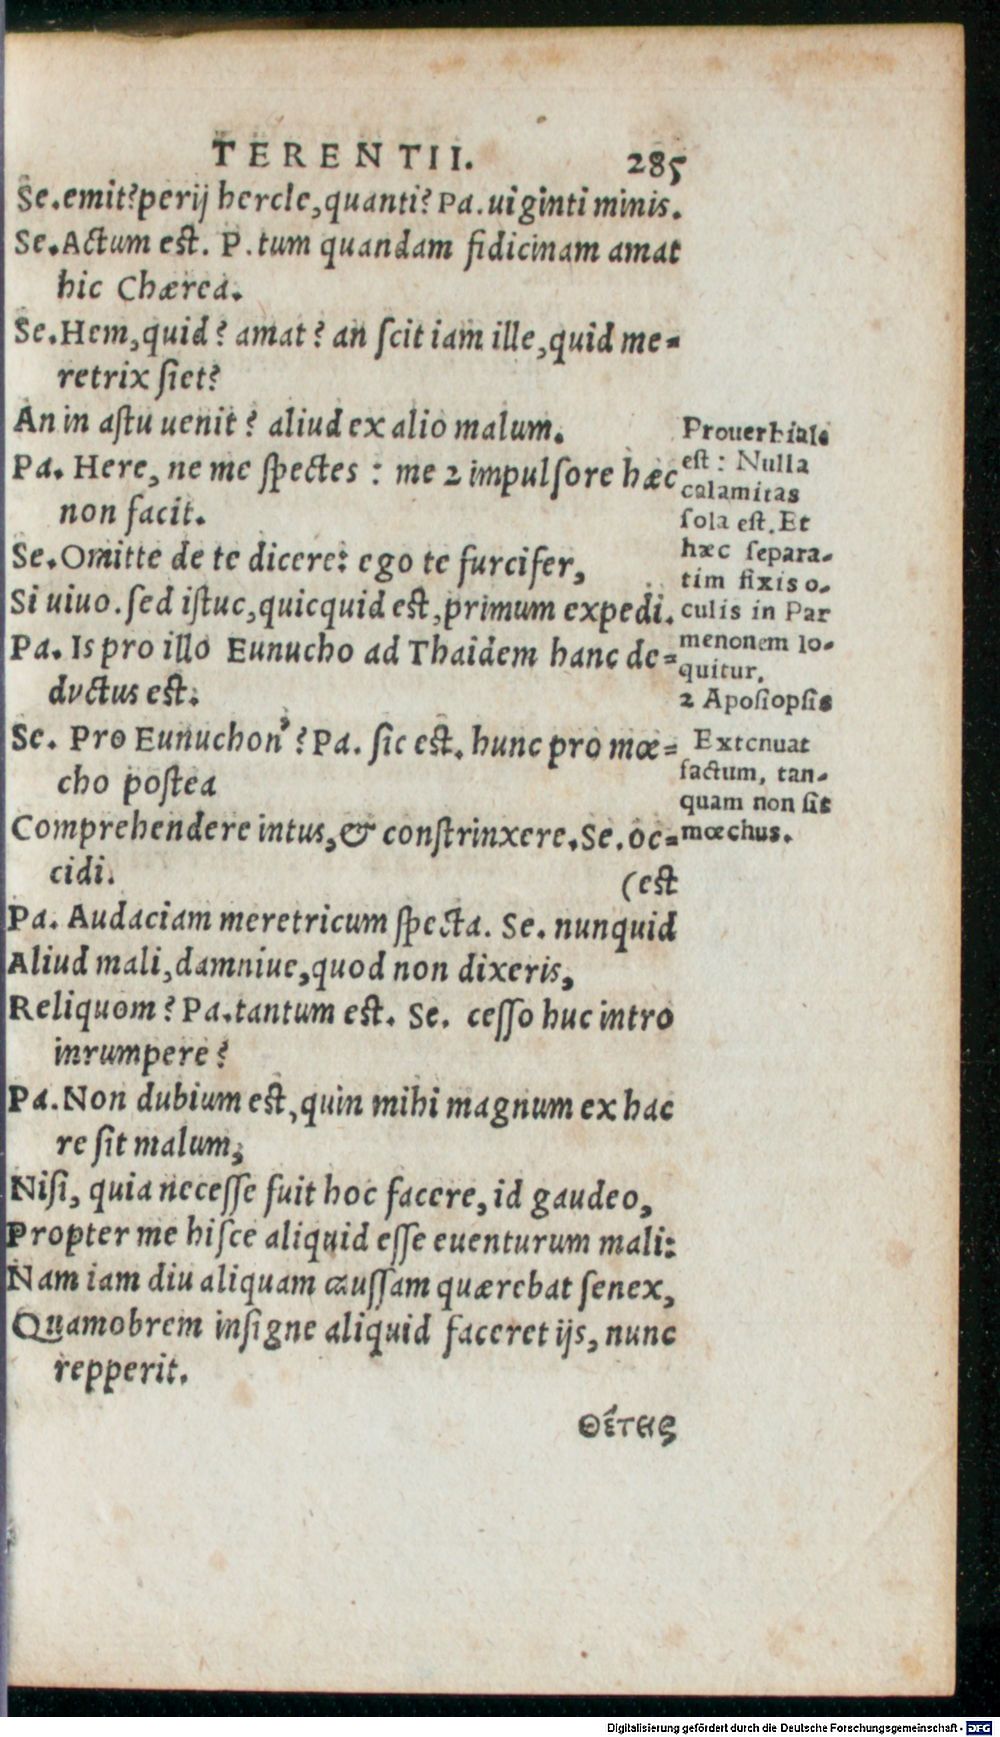 TERENTII. 285
Se. emit? perij hercle, quanti? Pa. uiginti minis.
Se. Actum est. P. tum quandam fidicinam amat
hic Chærea.
Se. Hem, quid? amat? an scit iam ille, quid me=
retrix siet?
An in astu uenit? aliud ex alio malum.
Pa. Here, ne me spectes: me 2 impulsore hæc
non facit.
Se. Omitte de te dicere: ego te furcifer,
Si uiuo. sed istuc, quicquid est, primum expedi.
Pa. Is pro illo Eunucho ad Thaidem hanc de=
ductus est.
Se. Pro Eunuchon'? Pa. sic est. hunc pro mœ=
cho postea
Comprehendere intus, & constrinxere. Se. oc=
cidi. (est
Pa. Audaciam meretricum specta. Se. nunquid
Aliud mali, damniue, quod non dixeris,
Reliquom? Pa. tantum est. Se. cesso huc intro
inrumpere?
Pa. Non dubium est, quin mihi magnum ex hac
re sit malum,
Nisi, quia necesse fuit hoc facere, id gaudeo,
Propter me hisce aliquid esse euenturum mali:
Nam iam diu aliquam caussam quærebat senex,
Quamobrem insigne aliquid faceret ijs, nunc
repperit.
Θέτης
Prouerbiale
est: Nulla
calamitas
sola est. Et
hæc separa-
tim fixis o-
culis in Par
menonem lo-
quitur.
2 Aposiopsis
Extenuat
factum, tan-
quam non sit
mœchus.
Digitalisierung gefördert durch die Deutsche Forschungsgemeinschaft - DFG